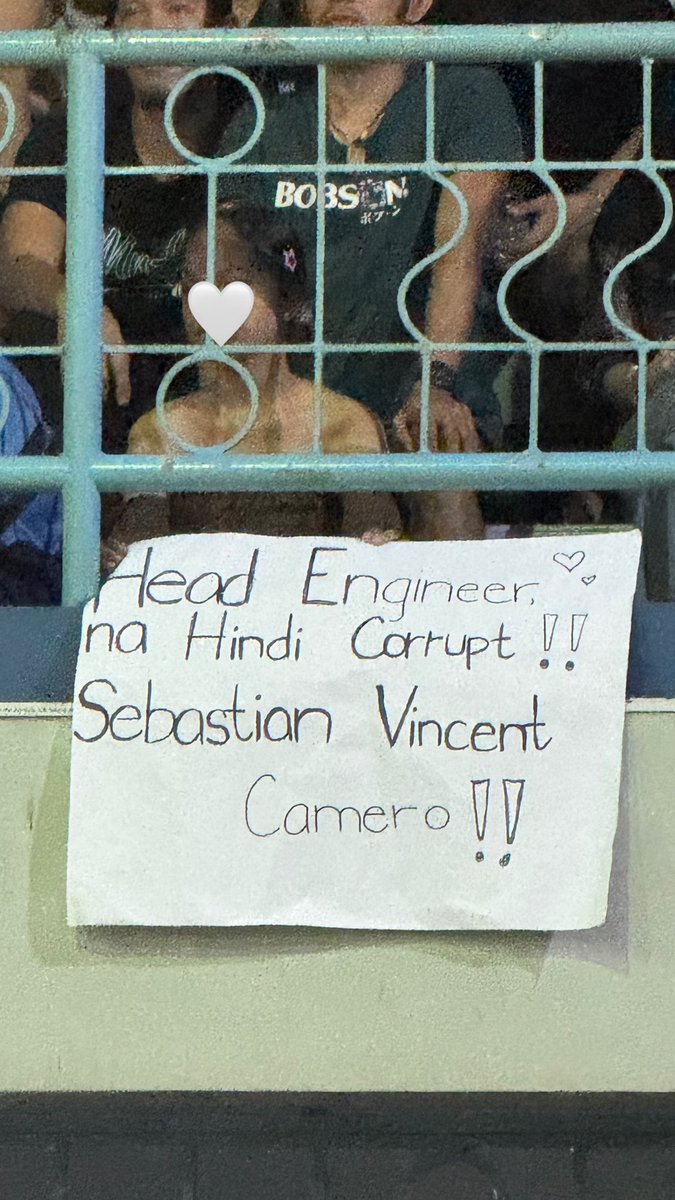 BOBSON
ボブソン
Head Engineer,
na Hindi Corrupt !!
Sebastian Vincent
Camero !!